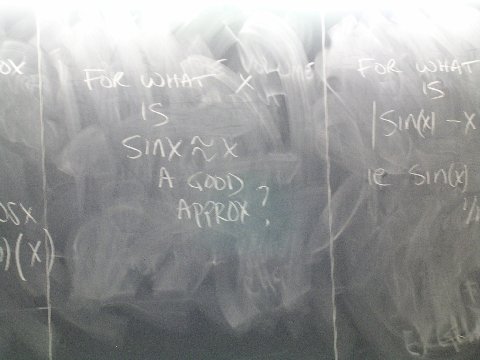 OX
FOR WHAT X
IS
SIN X ≈ X
A GOOD
APPROX?
OSX
)(X)
FOR WHAT
IS
|Sin(x) - X
ie Sin(x)